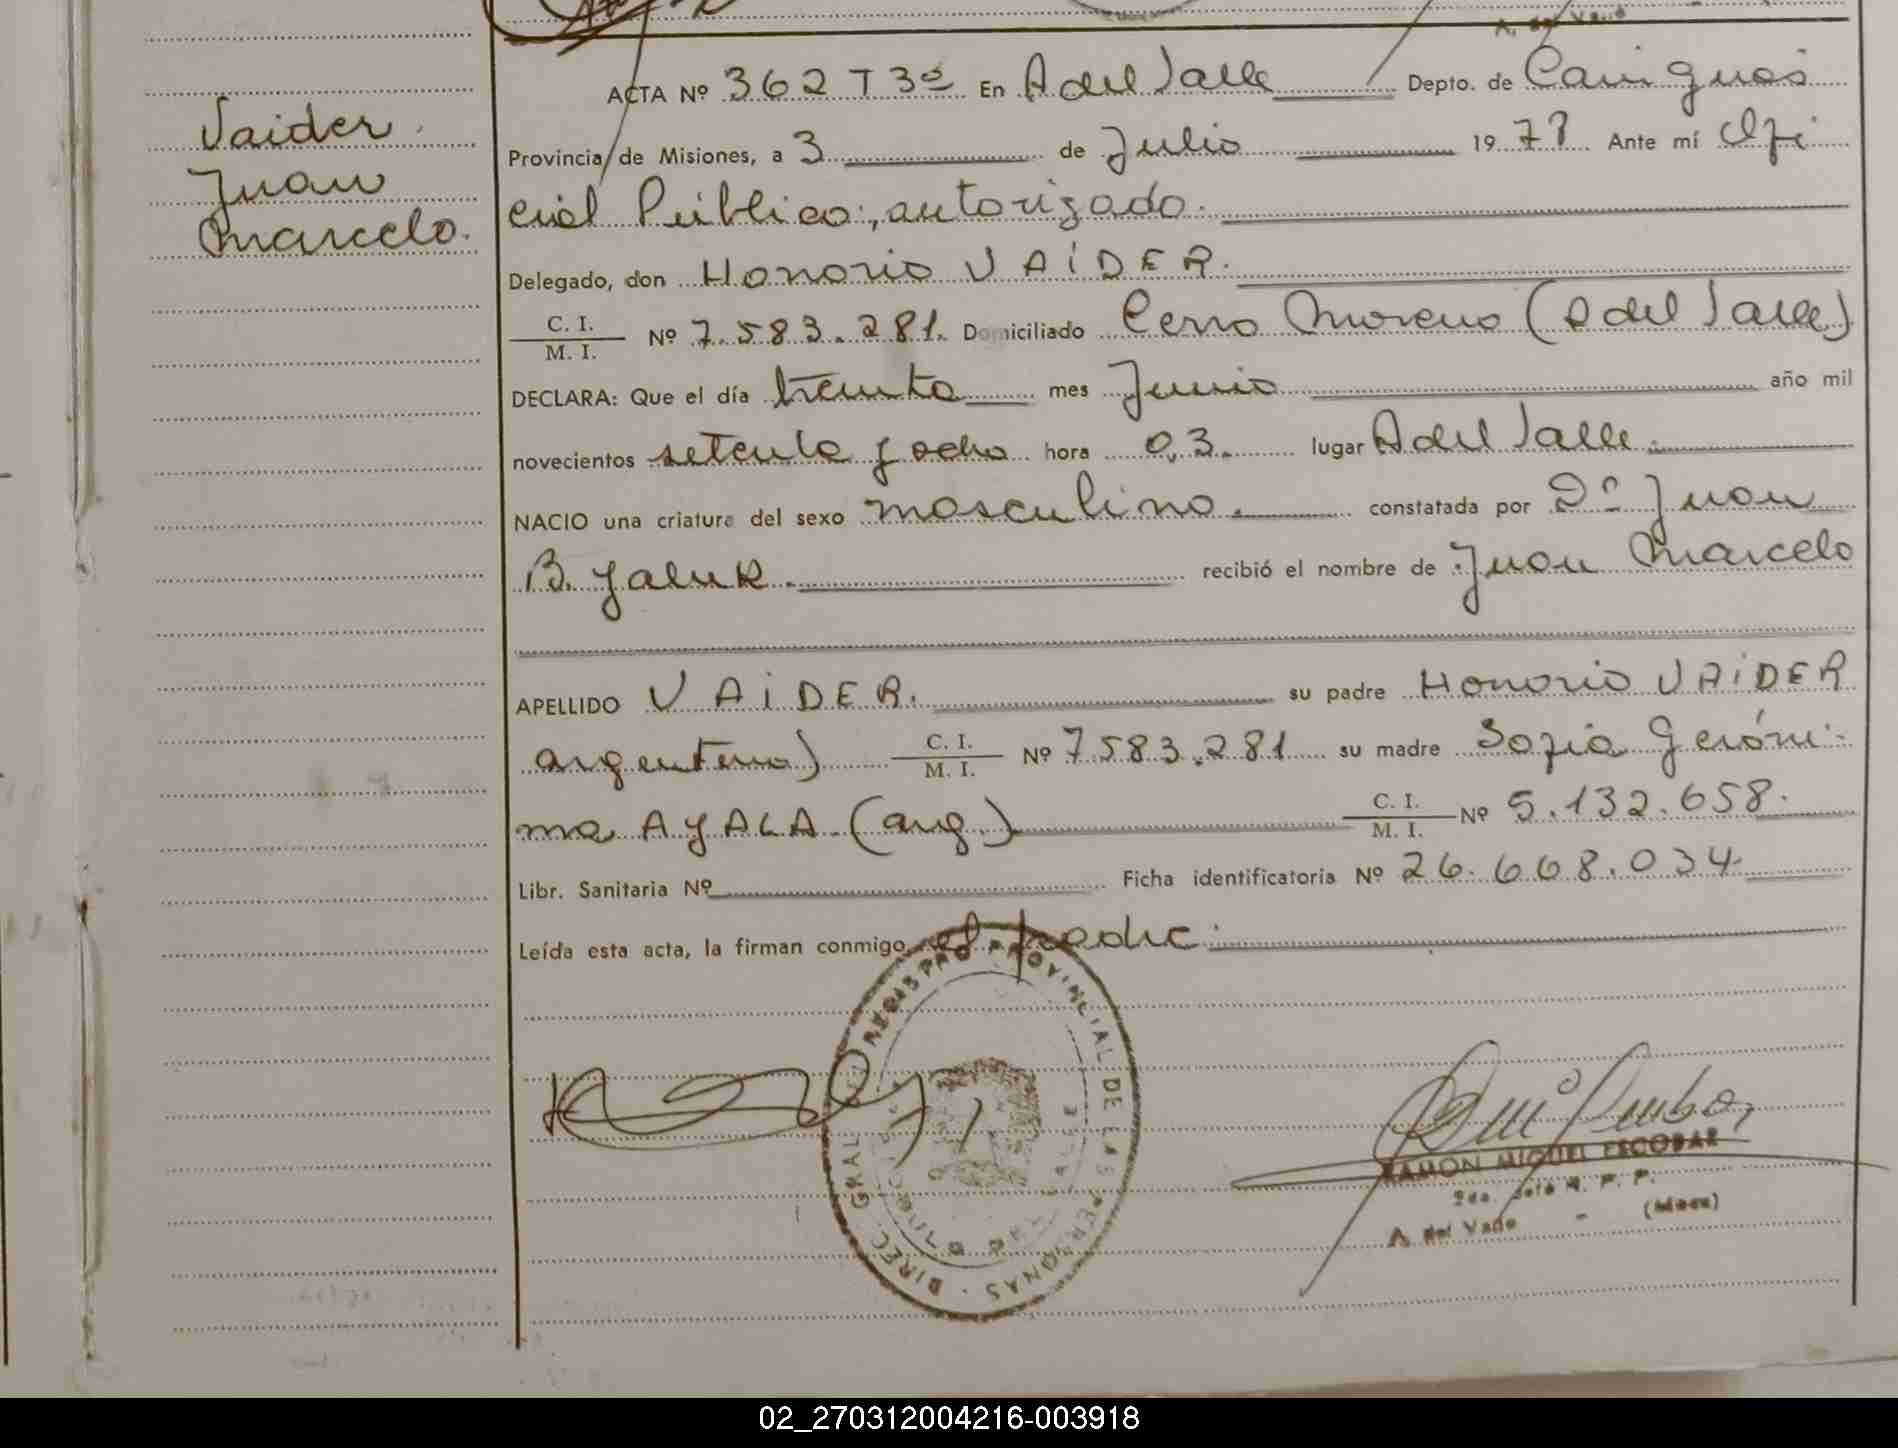 A. del Valle
ACTA Nº 362 T 3º En A del Valle Depto. de Cainguás
Vaider
Juan
Marcelo.
Provincia de Misiones, a 3 de Julio 1978 Ante mí Ofi
cial Público, autorizado.
Delegado, don Honorio VAIDER.
C. I.
M. I. Nº 7.583.281. Domiciliado Cerro Moreno (A del Valle)
DECLARA: Que el día treinta mes Junio año mil
novecientos setenta y ocho hora 0,3. lugar A del Valle.
NACIO una criatura del sexo masculino. constatada por Dº Juan
B. Yaluk. recibió el nombre de Juan Marcelo
APELLIDO VAIDER. su padre Honorio VAIDER
argentino) C. I.
M. I. Nº 7583.281 su madre Sofia Geróni-
ma AYALA (arg.) C. I.
M. I. Nº 5.132.658.
Libr. Sanitaria Nº Ficha identificatoria Nº 26.668.034
Leída esta acta, la firman conmigo el padre.
DIREC. GRAL REGISTRO PROVINCIAL DE LAS PERSONAS
RAMON MIGUEL ESCOBAR
A. del Valle
02_270312004216-003918